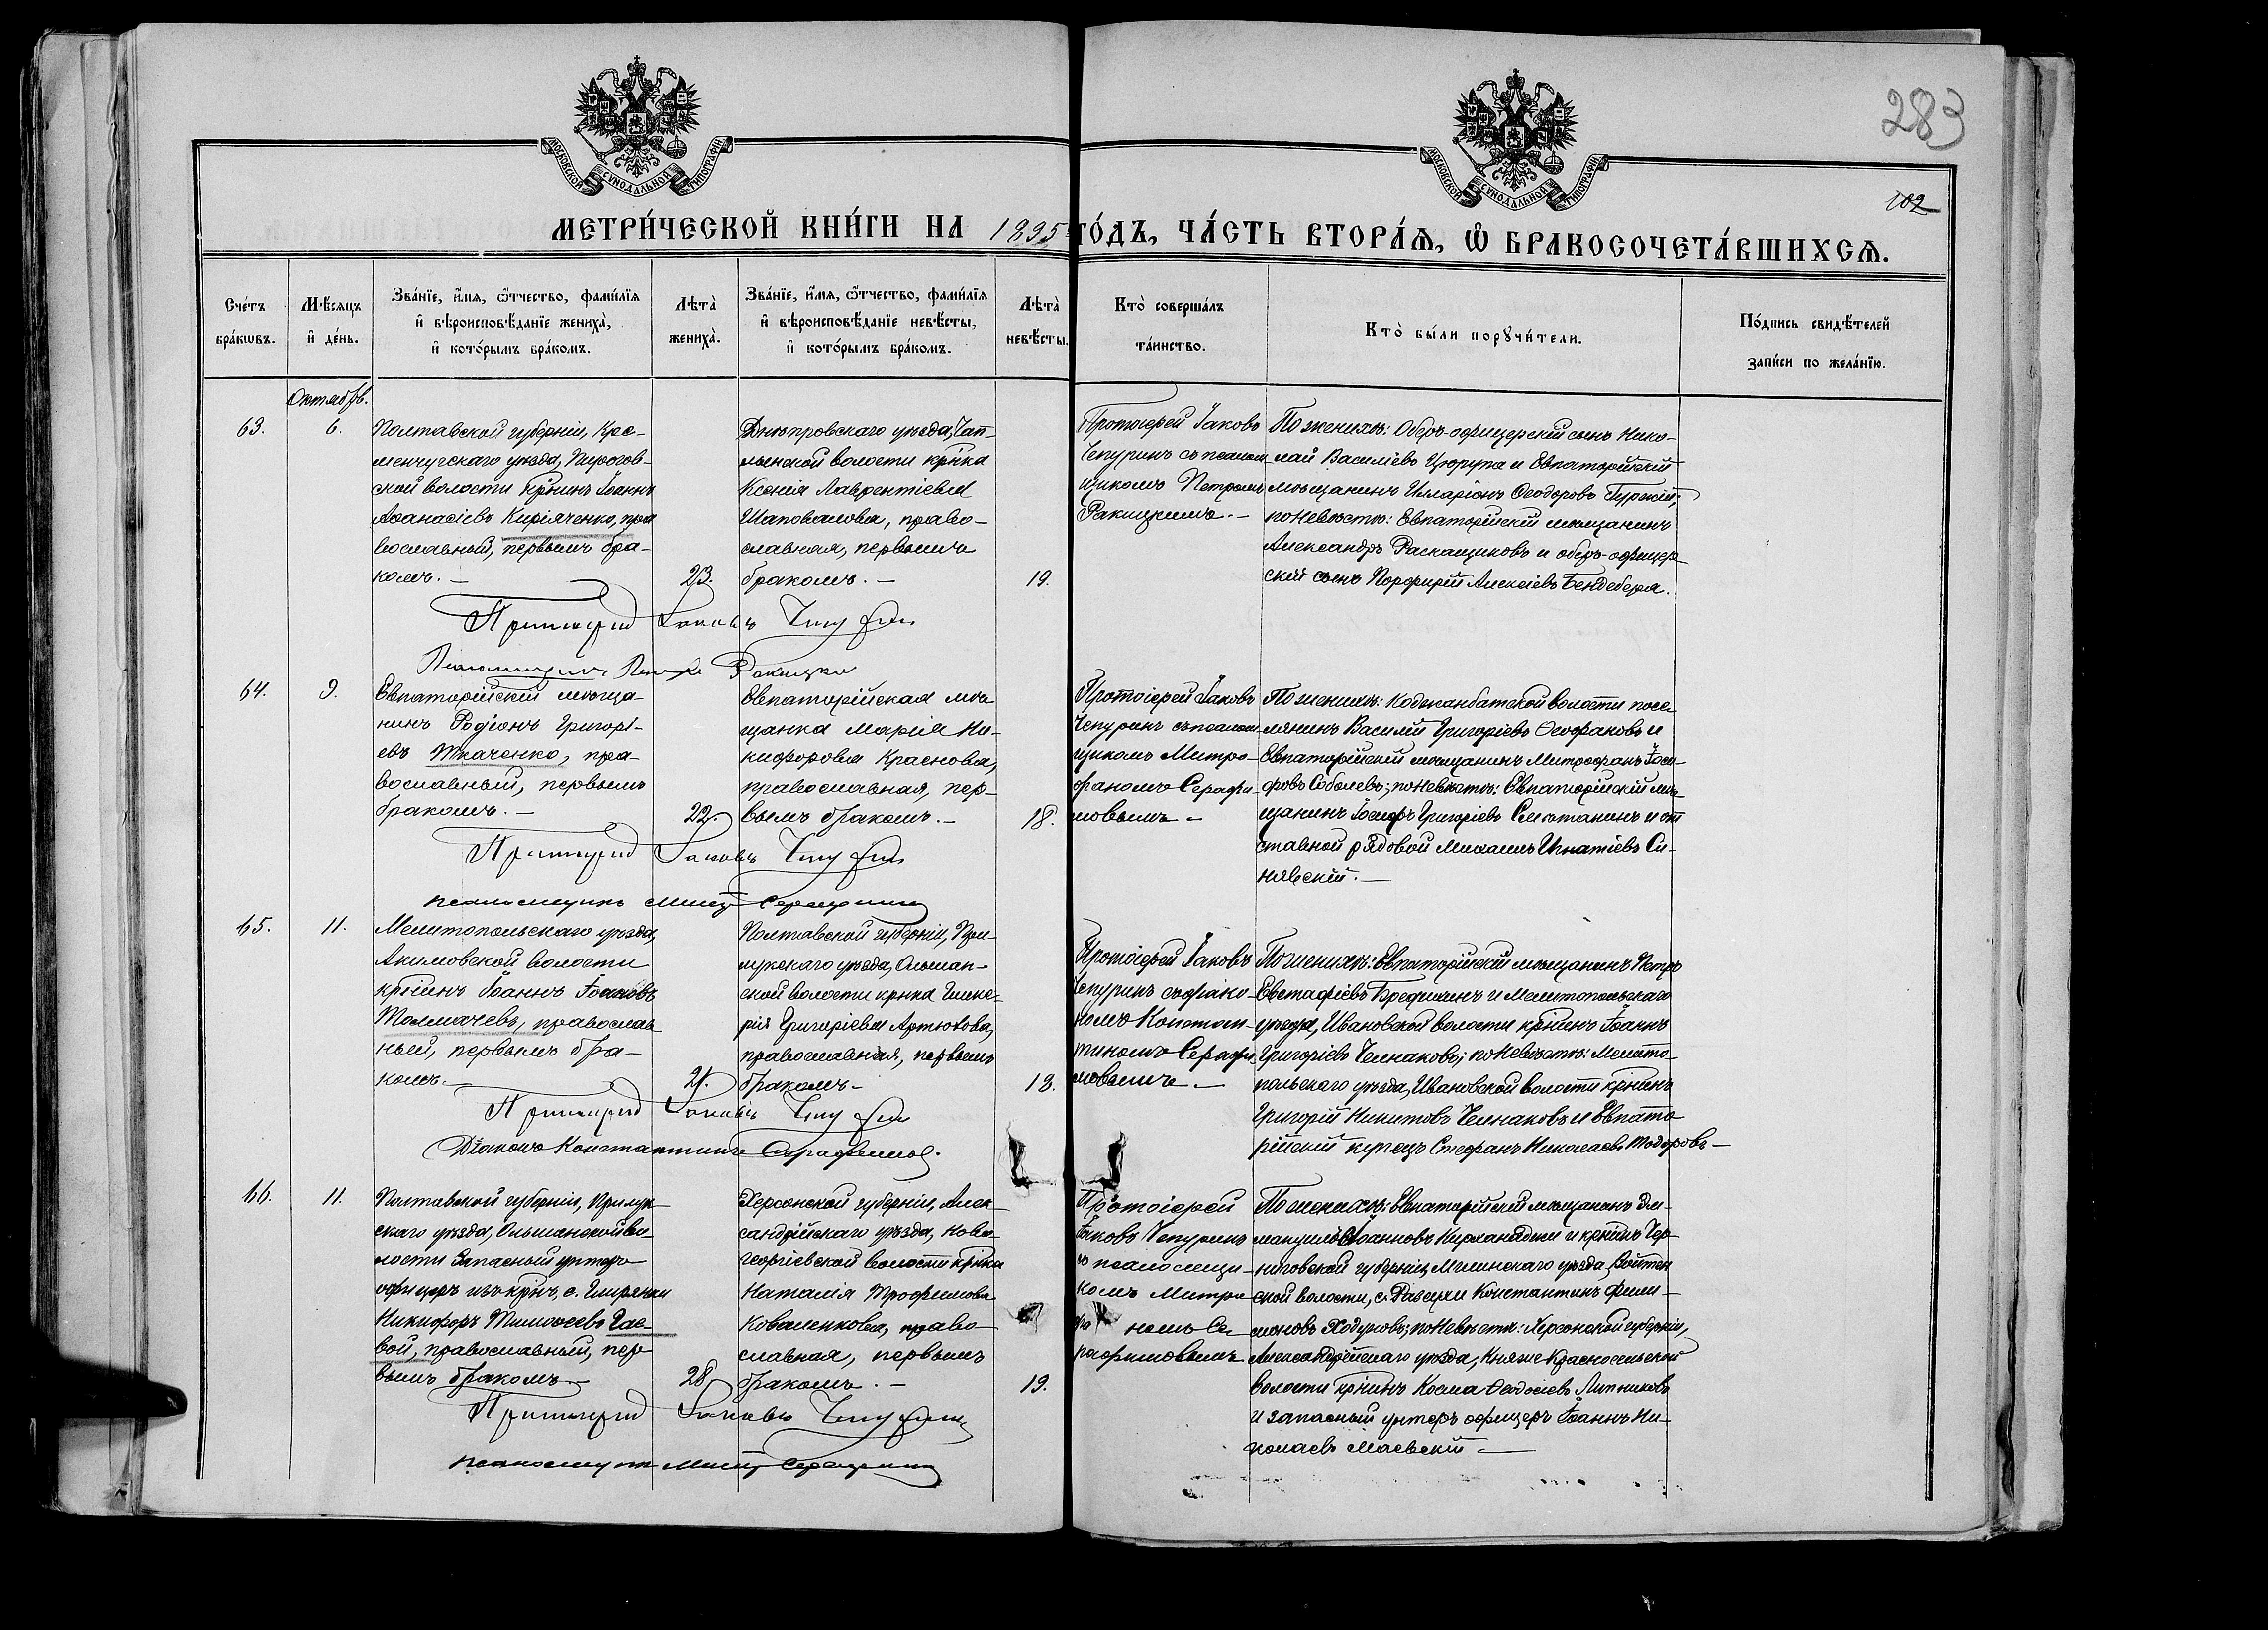 283
102
МОСКОВСКОЙ СѴНОДАЛЬНОЙ ТИПОГРАФІИ
МОСКОВСКОЙ СѴНОДАЛЬНОЙ ТИПОГРАФІИ
МЕТРИ́ЧЕСКОЙ КНИ́ГИ НА 1895 ГО́ДЪ, ЧА́СТЬ ВТОРА́Ѧ, Ѡ҆ БРАКОСОЧЕТА́ВШИХСѦ.
Сче́тъ
бра́кѡвъ.
Мѣ́сѧцъ
и҆ де́нь.
Зва́нїе, и҆́мѧ, ѻ҆́тчество, фамѝлїѧ
и҆ вѣроисповѣ́данїе жениха̀,
и҆ кото́рымъ бра́комъ.
Лѣта̀
жениха̀.
Зва́нїе, и҆́мѧ, ѻ҆́тчество, фамѝлїѧ
и҆ вѣроисповѣ́данїе невѣ́сты,
и҆ кото́рымъ бра́комъ.
Лѣта̀
невѣ́сты.
Кто̀ соверша́лъ
та́инство.
Кто̀ бы́ли порꙋчи́тели.
По́дпись свидѣ́телей
запи́си по жела́нїю.
Октябрь.
63.
6.
Полтавской губерніи, Кре-
менчугскаго уѣзда, Пирогов-
ской волости кр̃нинъ Іоаннъ
Аѳанасіевъ Киріяченко, пра
вославный, первымъ бра-
комъ.
23.
Днѣпровскаго уѣзда, Чап-
линской волости кр̃нка
Ксенія Лаврентіевна
Шаповалова, право-
славная, первымъ
бракомъ.
19.
Протоіерей Іаковъ
Чепуринъ съ псалом
щикомъ Петромъ
Ракицкимъ.
По женихѣ: Оберъ-офицерскій сынъ Нико-
лай Василіевъ Цюрупа и Евпаторійскій
мѣщанинъ Илларіонъ Ѳеодоровъ
по невѣстѣ: Евпаторійскій мѣщанинъ
Александръ Раскащиковъ и оберъ-офицер
скій сынъ Порфирій Алексіевъ Бендебери.
Протоіерей Іаковъ Чепуринъ
Псаломщикъ Петръ Ракицкій
64.
9.
Евпаторійскій мѣща-
нинъ Родіонъ Григорі-
евъ Ткаченко, пра-
вославный, первымъ
бракомъ.
22.
Евпаторійская мѣ
щанка Марія Ни-
кифоровна Краснова,
православная, пер-
вымъ бракомъ.
18.
Протоіерей Іаковъ
Чепуринъ съ псалом
щикомъ Митро-
фаномъ Серафи-
мовымъ
По женихѣ: Коджанбатской волости посе
лянинъ Василій Григоріевъ Ѳеофановъ и
Евпаторійскій мѣщанинъ Митрофанъ Іоси-
фовъ Соболевъ; по невѣстѣ: Евпаторійскій мѣ
щанинъ Іосифъ Григоріевъ Сметанинъ и от
ставной рядовой Михаилъ Игнатіевъ Си-
нявскій.
Протоіерей Іаковъ Чепуринъ
псаломщикъ Митр. Серафимовъ
65.
11.
Мелитопольскаго уѣзда,
Акимовской волости
кр̃нинъ Іоаннъ Іоанновъ
Толмачевъ, православ
ный, первымъ бра-
комъ.
21.
Полтавской губерніи, При-
лукскаго уѣзда, Ольшан-
ской волости кр̃нка Глике-
рія Григоріевна Артюхова,
православная, первымъ
бракомъ.
18.
Протоіерей Іаковъ
Чепуринъ съ діако-
номъ Констан-
тиномъ Серафи
мовымъ
По женихѣ: Евпаторійскій мѣщанинъ Петръ
Евстафіевъ Бредихинъ и Мелитопольскаго
уѣзда, Ивановской волости кр̃нинъ Іоаннъ
Григоріевъ Челнаковъ; по невѣстѣ: Мелито
польскаго уѣзда, Ивановской волости кр̃нинъ
Григорій Никитовъ Челнаковъ и Евпато
рійскій купецъ Стефанъ Николаевъ Тодоровъ
Протоіерей Іаковъ Чепуринъ
Діаконъ Константинъ Серафимовъ.
66.
11.
Полтавской губерніи, Прилук
скаго уѣзда, Ольшанской во
лости Запасный унтеръ
офицеръ изъ кр̃нъ, с.
Никифоръ Тимоѳеевъ Гае
вой, православный, пер
вымъ бракомъ
28.
Херсонской губерніи, Алек
сандрійскаго уѣзда, Ново
георгіевской волости кр̃нка
Наталія Трофимова
Коваленкова, право
славная, первымъ
бракомъ.
19.
Протоіерей
Іаковъ Чепуринъ
съ псаломщи-
комъ Митро
фа номъ Се
рафимовымъ
По женихѣ: Евпаторійскій мѣщанинъ Эм-
мануилъ Іоанновъ Кирханаджи и кр̃нинъ Чер-
ниговской губерніи, Мглинскаго уѣзда,
ской волости, с. Рассухи Константинъ Фили-
моновъ Ходуновъ; по невѣстѣ: Херсонской губерніи,
Александрійскаго уѣзда, Княже Красносельской
волости кр̃нинъ Косма Ѳеодосіевъ Липниковъ
и запасный унтеръ офицеръ Іоаннъ Ни-
колаевъ Маевскій
Протоіерей Іаковъ Чепуринъ
псаломщикъ Митр. Серафимовъ